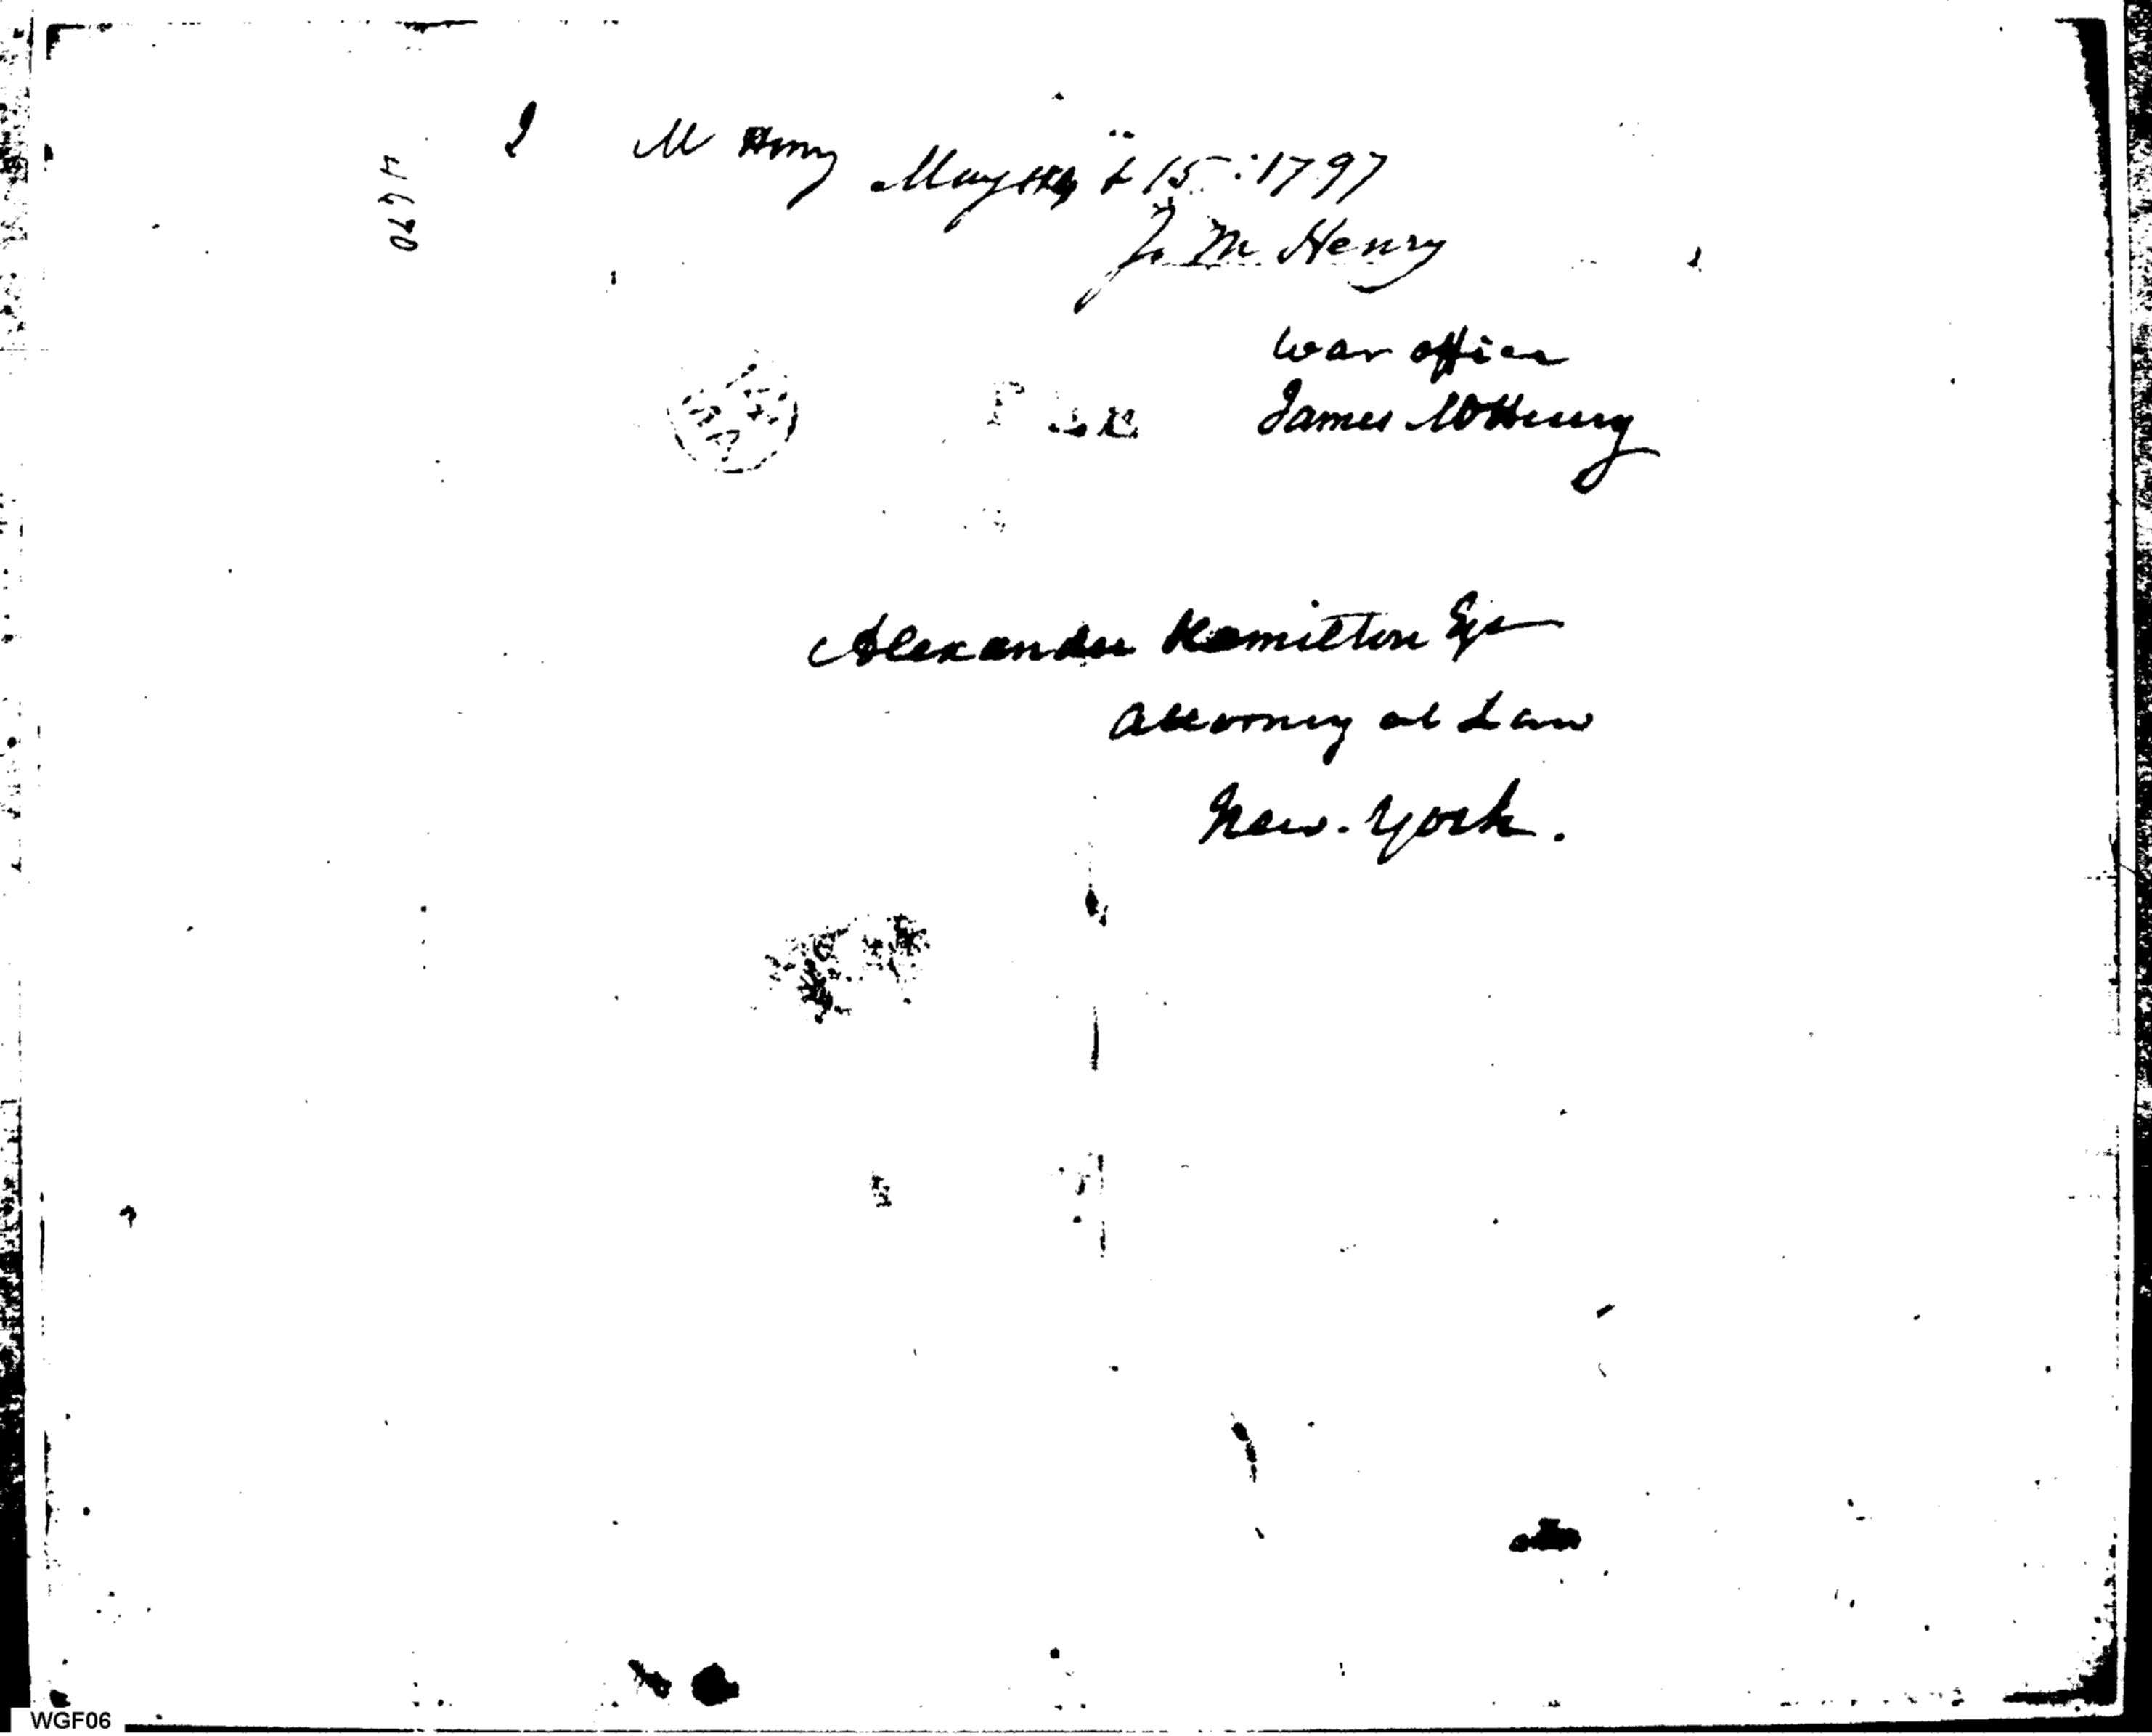 M Henry May & 15: 1797
J. M Henry
War office
James McHenry
Free
Alexander Hamilton Esqr
Attorney at Law
New-York.
WGF06